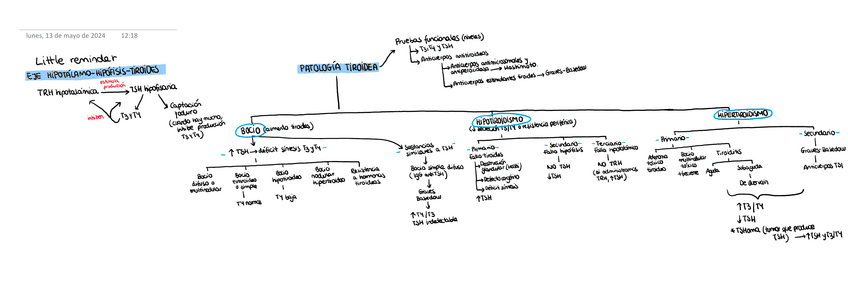 lunes, 13 de mayo de 2024 12:18
Little reminder
EJE HIPOTÁLAMO-HIPÓFISIS-TIROIDES
TRH hipotalámica
estimula
producción
TSH hipofisaria
inhiben
T3 y T4
Captación
yoduro
(cuando hay mucho,
inhibe producción
T3 y T4)
PATOLOGÍA TIROIDEA
Pruebas funcionales (niveles)
T3, T4 y TSH
Anticuerpos antitiroideos
Anticuerpos antimicrosomales y
antiperoxidasa → Hashimoto
Anticuerpos estimulantes tiroides → Graves-Basedow
BOCIO (aumento tiroides)
↑ TSH → déficit síntesis T3 y T4
Bocio
difuso o
multinodular
Bocio
eutiroideo
o simple
T4 normal
Bocio
hipotiroideo
T4 baja
Bocio
nodular
hipertiroideo
Resistencia
a hormonas
tiroideas
Sustancias
similares a TSH
Bocio simple difuso
(IgG anti TSH)
Graves
Basedow
↑ T4/T3
TSH indetectable
HIPOTIROIDISMO
(↓ secreción T3/T4 o resistencia periférica)
Primario
Fallo tiroides
Destrucción
glandular
Defecto órgano
Déficit síntesis
↑ TSH
Secundario
Fallo hipófisis
NO TSH
↓ TSH
Terciario
Fallo hipotálamo
NO TRH
(si administramos
TRH, ↑ TSH)
HIPERTIROIDISMO
Primario
Adenoma
tóxico
tiroides
Bocio
multinodular
tóxico
Tiroiditis
Aguda
Subaguda
De Quervain
↑ T3/T4
↓ TSH
TSHoma (tumor que produce
TSH) → ↑ TSH y T3/T4
Secundario
Graves Basedow
Anticuerpos TSI